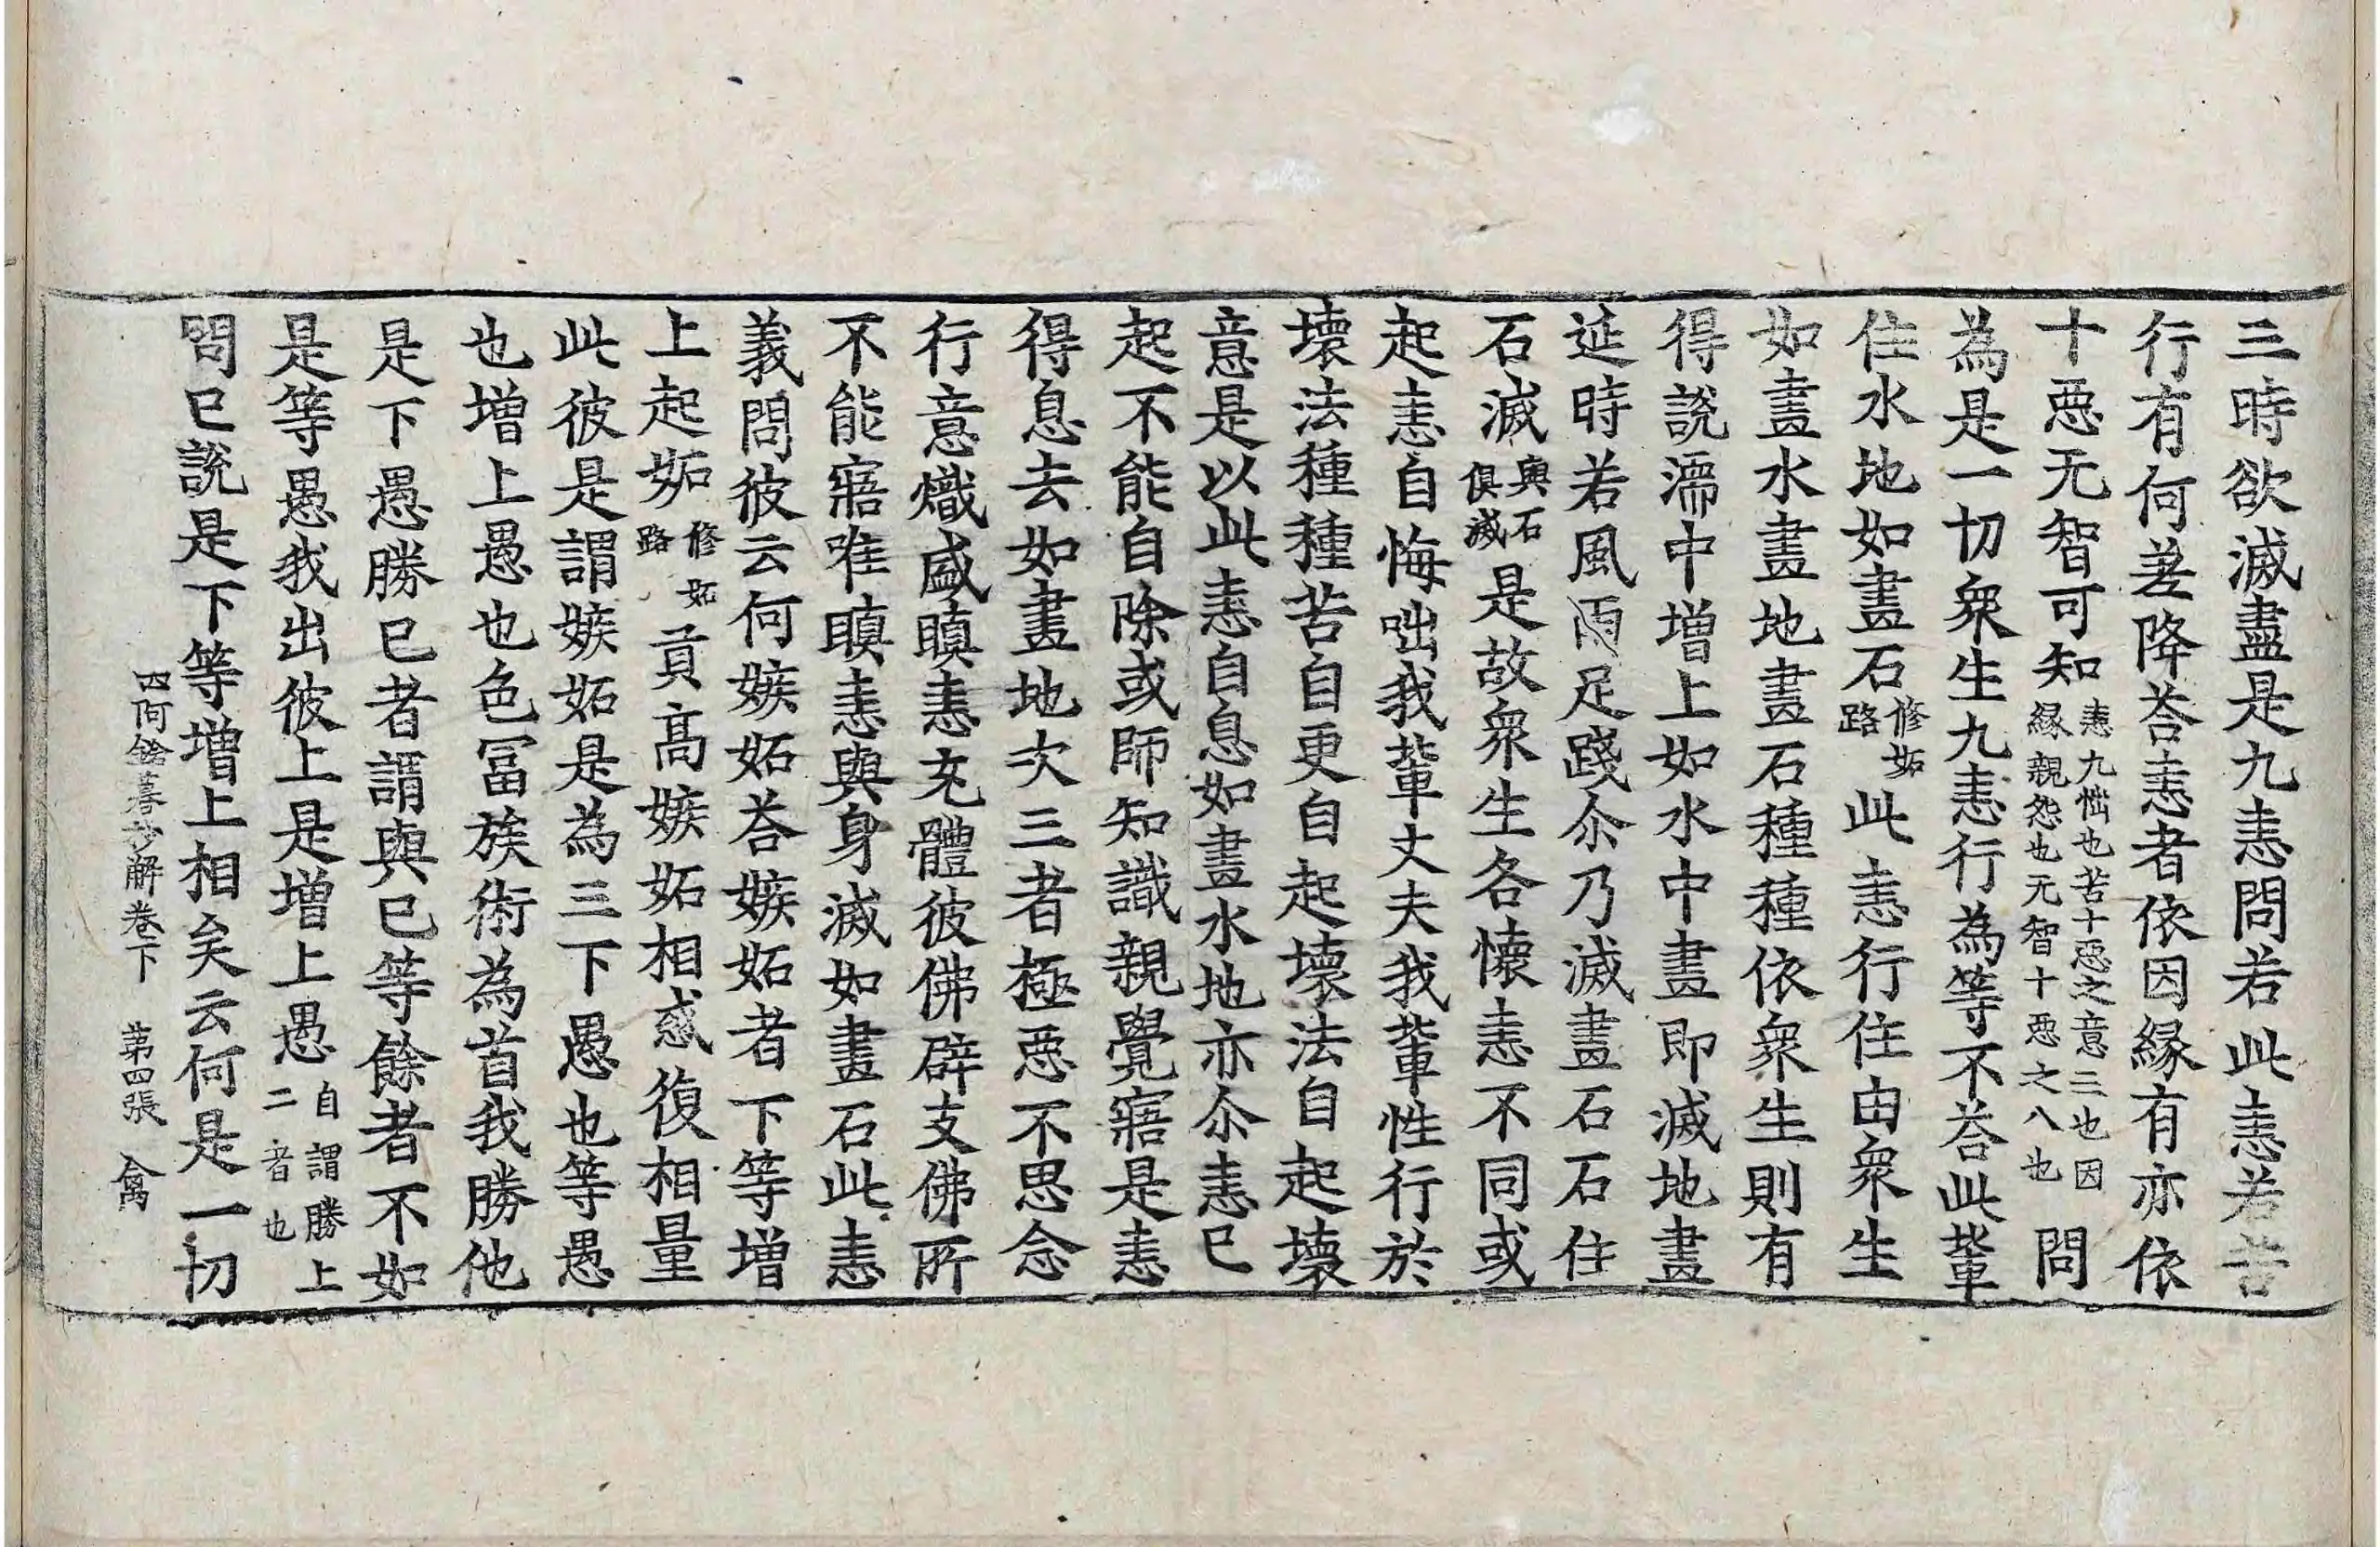 三時欲滅盡是九恚問若此恚若苦
行有何差降荅恚者依因緣有亦依
十惡无智可知恚九惱也苦十惡之意三也因緣親怨也无智十惡之八也問
為是一切衆生九恚行為等不荅此軰
住水地如畫石修妬路此恚行住由衆生
如畫水畫地畫石種種依衆生則有
得說濡中增上如水中畫即滅地畫
延時若風雨足踐尒乃滅畫石石住
石滅與石俱滅是故衆生各懷恚不同或
起恚自悔咄我軰丈夫我軰性行於
壞法種種苦自更自起壞法自起壞
意是以此恚自息如畫水地亦尒恚已
起不能自除或師知識親覺寤是恚
得息去如畫地次三者極惡不思念
行意熾盛瞋恚充體彼佛辟支佛所
不能寤唯瞋恚與身滅如畫石此恚
義問彼云何嫉妬荅嫉妬者下等增
上起妬修妬路貢高嫉妬相惑復相量
此彼是謂嫉妬是為三下愚也等愚
也增上愚也色冨族術為首我勝他
是下愚勝已者謂與已等餘者不如
是等愚我出彼上是增上愚自謂勝上二者也
問已說是下等增上相矣云何是一切
四阿鋡暮抄解卷下 苐四張 禽